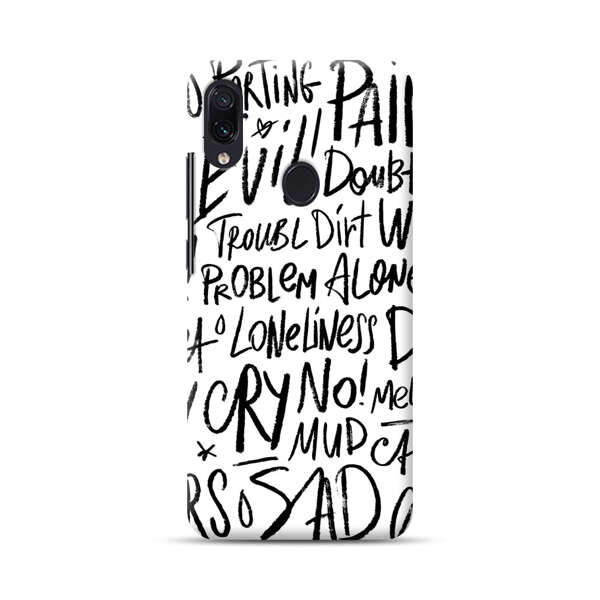 PARTING PAI
EVIL! DOUBT
TROUBL DIRT W
PROBLEM ALONE
A LONELINESS D
CRY NO! Mel
MUD CA
RS SAD